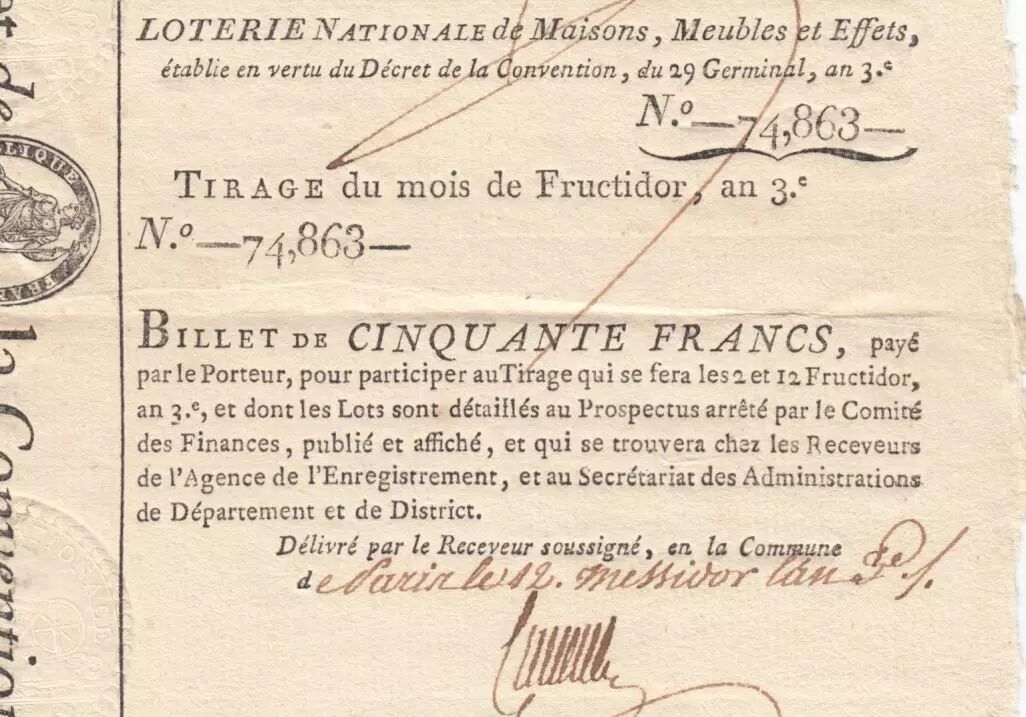 LOTERIE NATIONALE de Maisons, Meubles et Effets,
établie en vertu du Décret de la Convention, du 29 Germinal, an 3.e
N.o —74,863—
TIRAGE du mois de Fructidor, an 3.e
N.o —74,863—
BILLET DE CINQUANTE FRANCS, payé
par le Porteur, pour participer au Tirage qui se fera les 2 et 12 Fructidor,
an 3.e, et dont les Lots sont détaillés au Prospectus arrêté par le Comité
des Finances, publié et affiché, et qui se trouvera chez les Receveurs
de l'Agence de l'Enregistrement, et au Secrétariat des Administrations
de Département et de District.
Délivré par le Receveur soussigné, en la Commune
de Paris le 12. messidor l'an 3e
et de la Convention